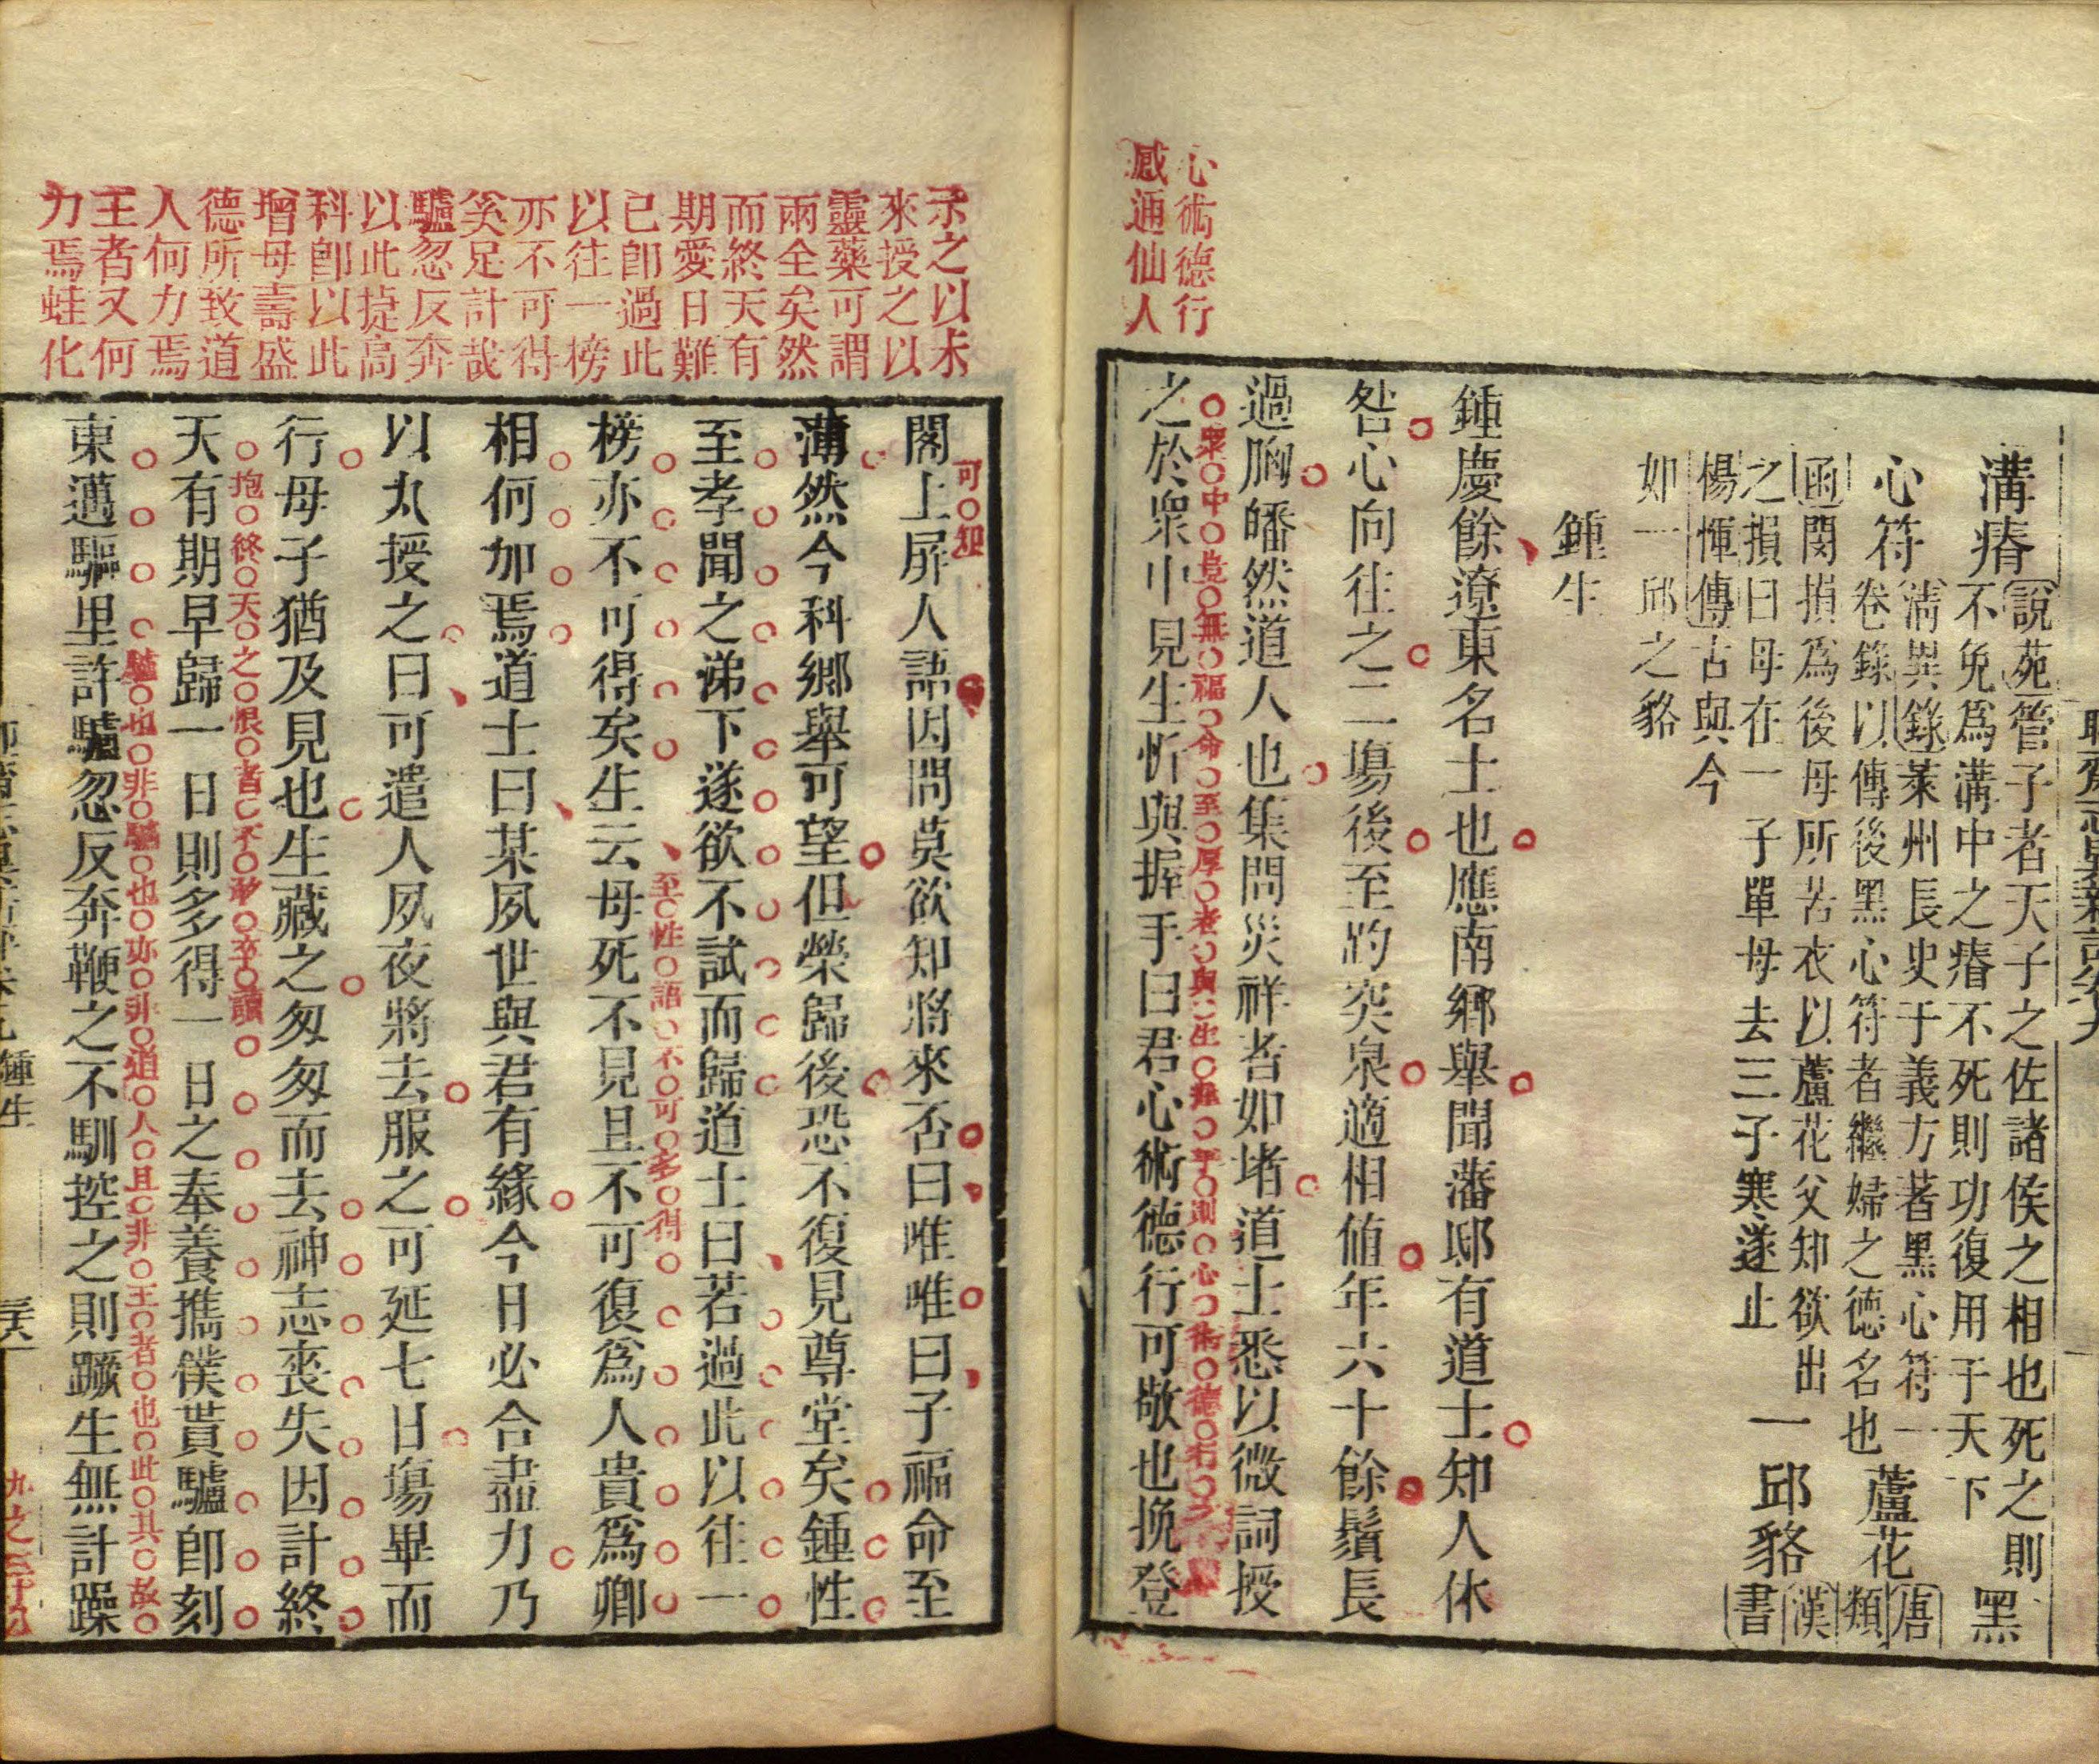 聊齋志異新評卷九
溝瘠
說苑管子者天子之佐諸侯之相也死之則
不免爲溝中之瘠不死則功復用于天下
黑
心符
清異錄萊州長史于義方著黑心符一
卷錄以傳後黑心符者繼婦之德名也
蘆花
唐類
函閔損爲後母所苦衣以蘆花父知欲出
之損曰母在一子單母去三子寒遂止
一邱貉
漢書
楊惲傳古與今
如一邱之貉
鍾生
鍾慶餘遼東名士也應南鄉舉聞藩邸有道士知人休
咎心向往之二場後至趵突泉適相値年六十餘鬚長
過胸皤然道人也集問災祥者如堵道士悉以微詞授
衆中竟無福命至厚者與生握手則心術德行
之於衆中見生忻與握手曰君心術德行可敬也挽登
心術德行
感通仙人
示之以未
來授之以
靈藥可謂
兩全矣然
而終天有
期愛日難
已卽過此
以往一榜
亦不可得
奚足計哉
驢忽反奔
以此捷高
科卽以此
增母壽盛
德所致道
人何力焉
王者又何
力焉蛙化
可知
閣上屏人語因問莫欲知將來否曰唯唯曰子福命至
薄然今科鄉舉可望但榮歸後恐不復見尊堂矣鍾性
至孝聞之涕下遂欲不試而歸道士曰若過此以往一
榜亦不可得矣生云母死不見且不可復爲人貴爲卿
至性語不可多得
相何加焉道士曰某夙世與君有緣今日必合盡力乃
以丸授之曰可遣人夙夜將去服之可延七日場畢而
行母子猶及見也生藏之匆匆而去神志喪失因計終
抱終天之恨者不卒讀
天有期早歸一日則多得一日之奉養攜僕貰驢卽刻
驢也非驢也亦非道人且非王者也此其故
東邁驅里許驢忽反奔鞭之不馴控之則蹶生無計躁
鍾生